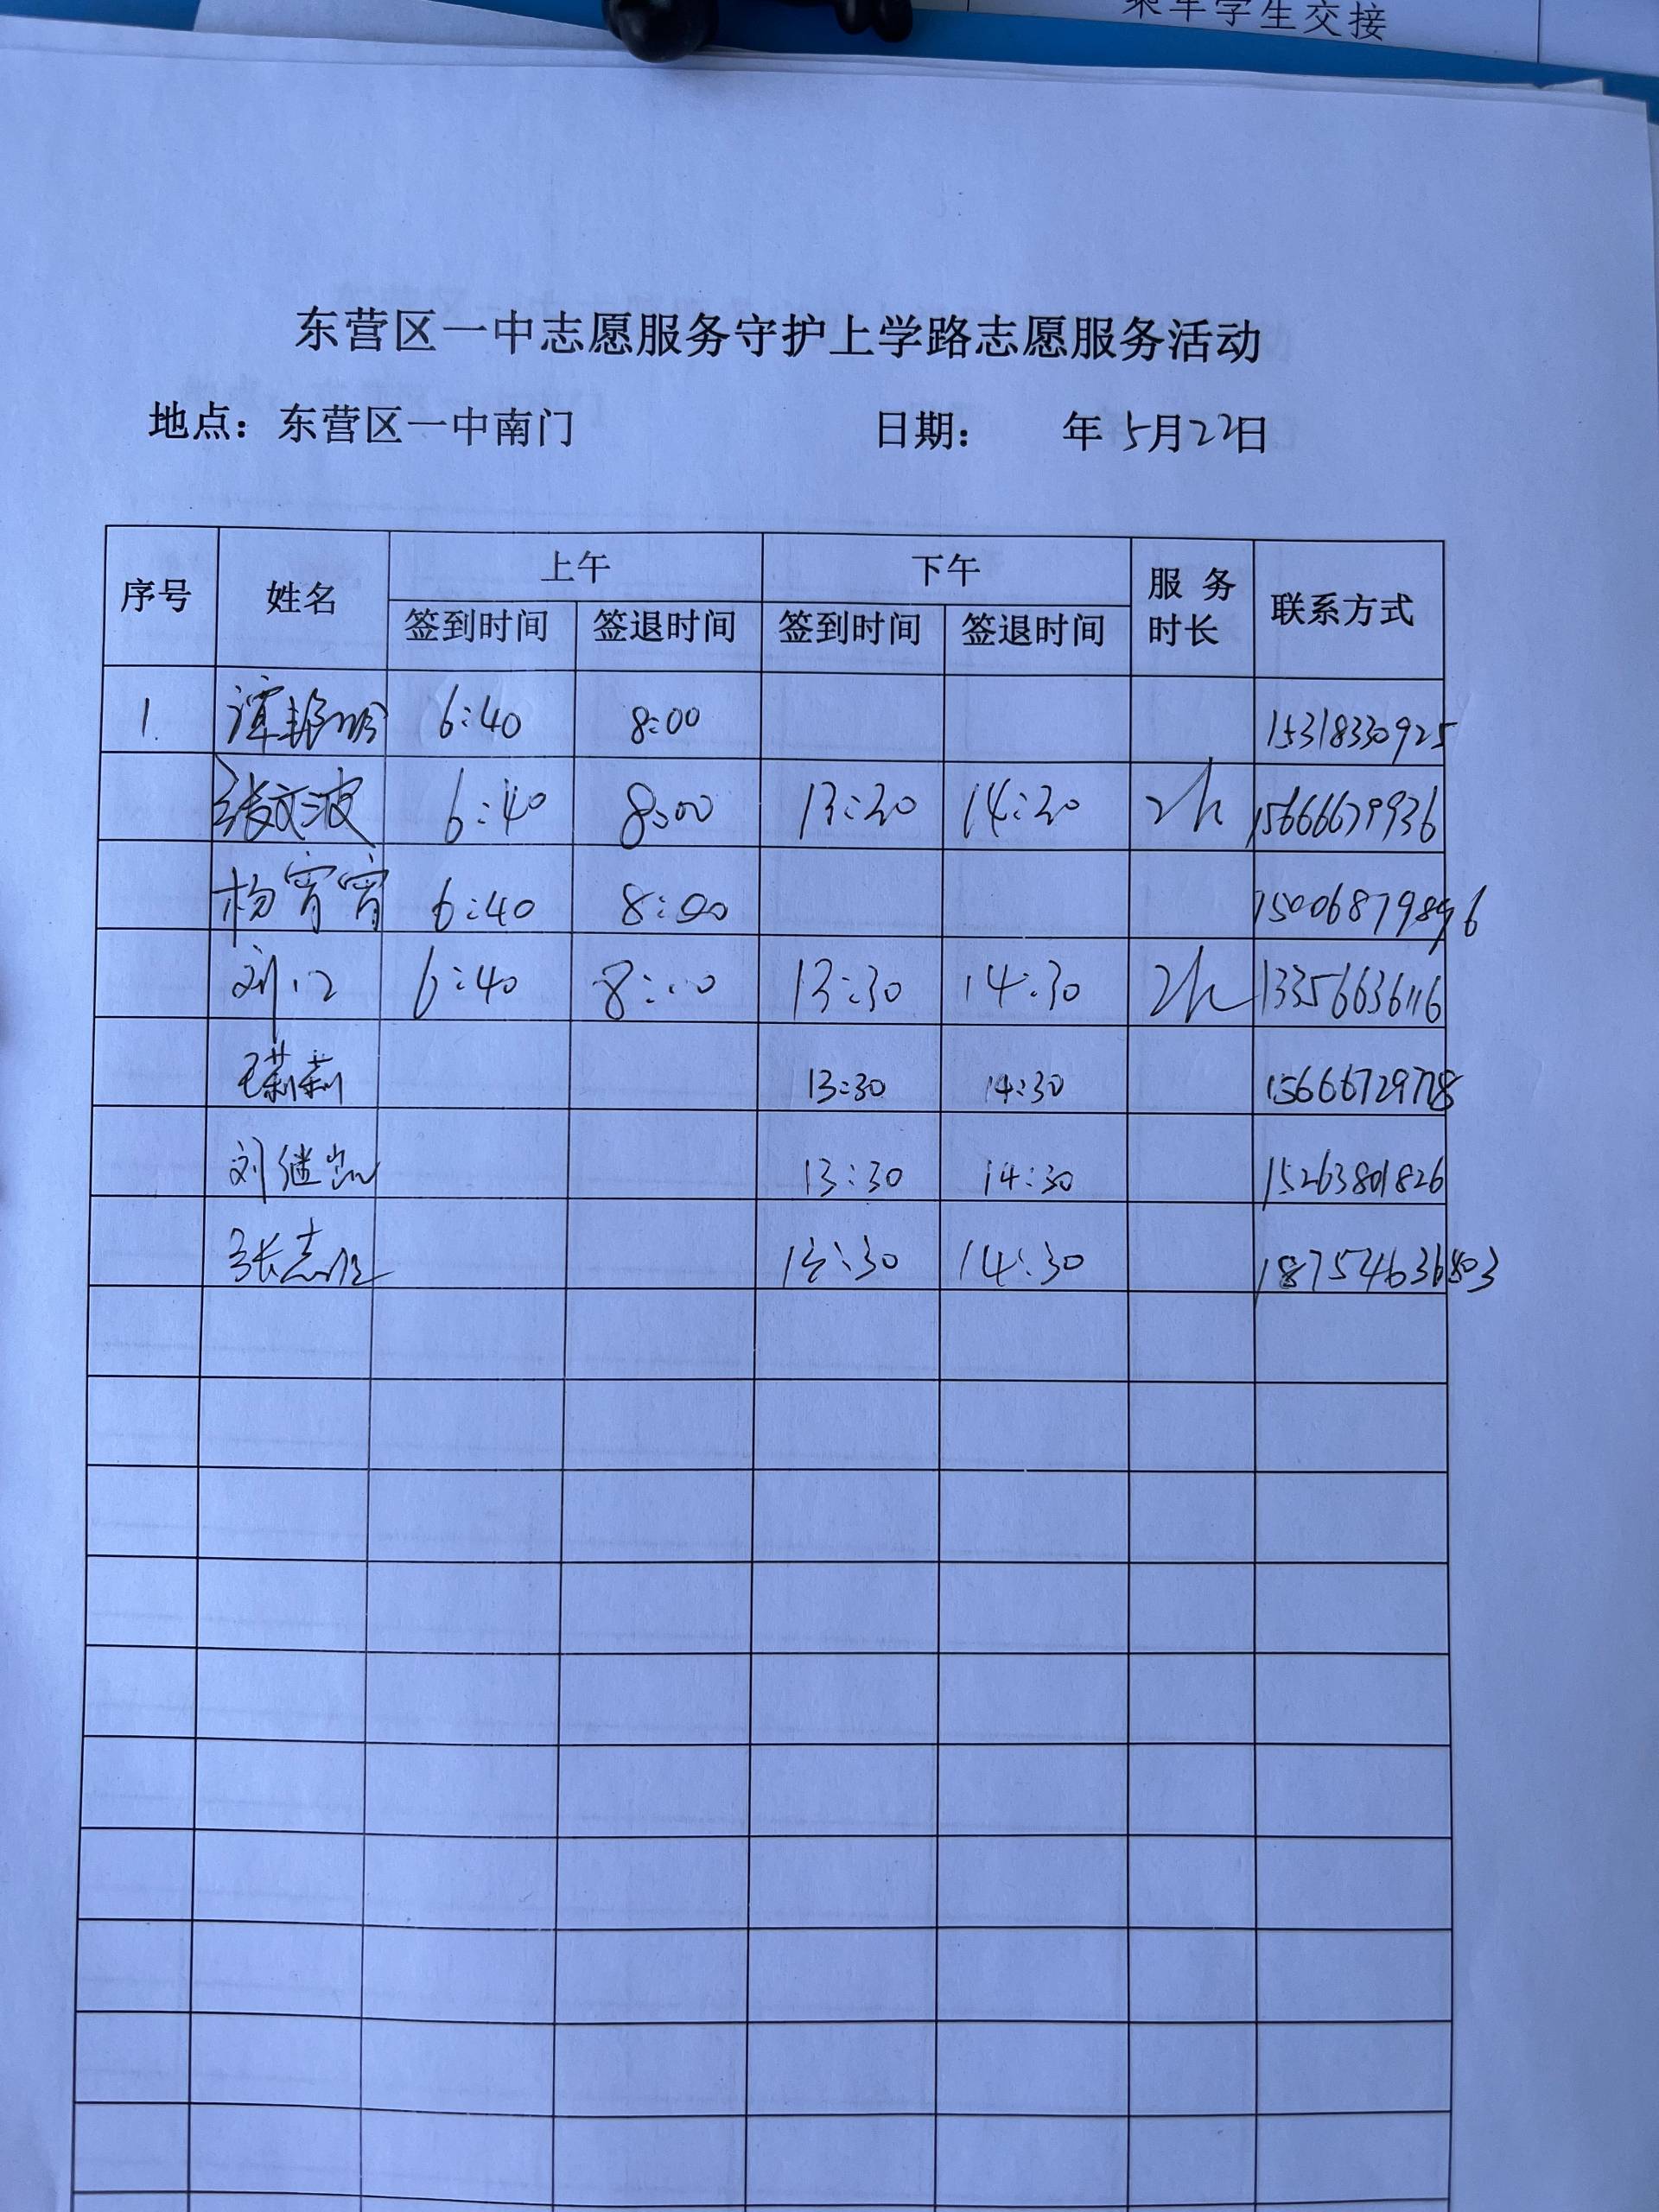 乘车学生交接
东营区一中志愿服务守护上学路志愿服务活动
地点：东营区一中南门 日期： 年5月22日
序号 姓名 上午 下午 服务时长 联系方式
签到时间 签退时间 签到时间 签退时间
1. 谭艳明 6:40 8:00 15318330925
张文波 6:40 8:00 13:30 14:30 2h 15666679936
杨宵宵 6:40 8:00 15006879896
刘 6:40 8:00 13:30 14:30 2h 13356636116
王莉莉 13:30 14:30 15666729778
刘继凯 13:30 14:30 15263801826
张志 13:30 14:30 18754636803